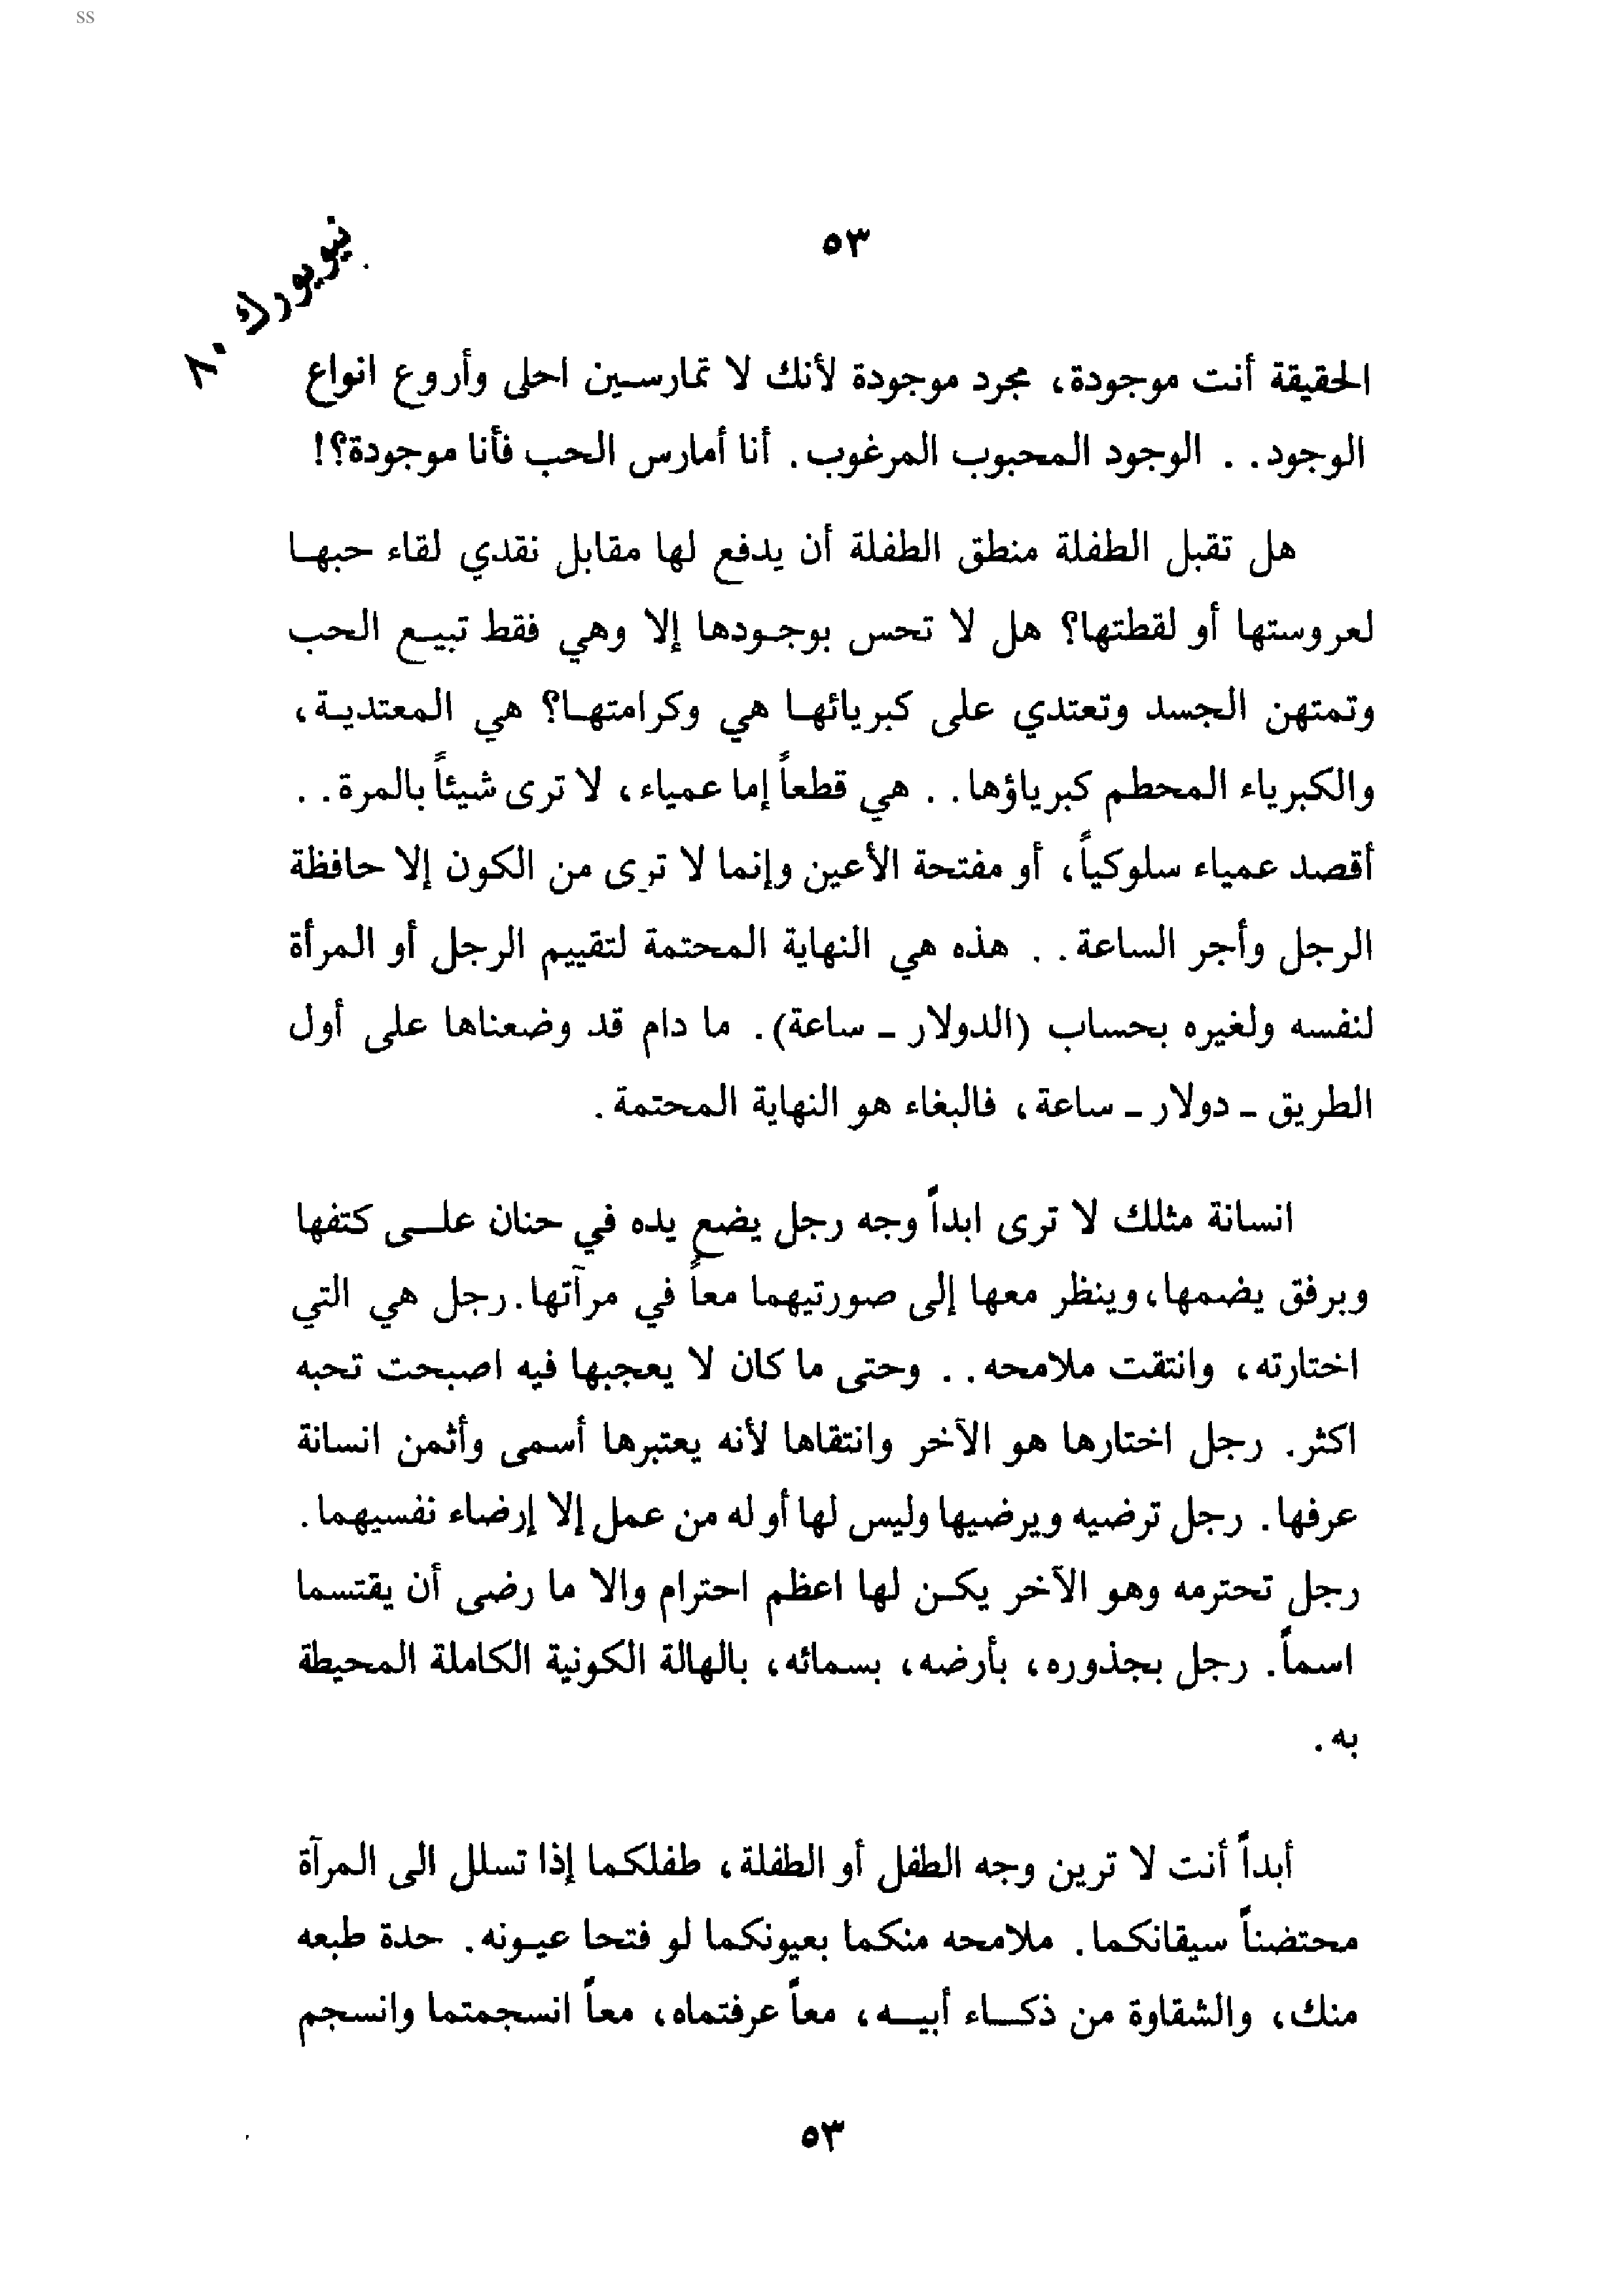 ss
٥٣
نيويورك ٨٠
الحقيقة أنت موجودة، مجرد موجودة لأنك لا تمارسين احلى وأروع انواع
الوجود. . الوجود المحبوب المرغوب. أنا أمارس الحب فأنا موجودة؟!
هل تقبل الطفلة منطق الطفلة أن يدفع لها مقابل نقدي لقاء حبها
لعروستها أو لقطتها؟ هل لا تحس بوجودها إلا وهي فقط تبيع الحب
وتمتهن الجسد وتعتدي على كبريائها هي وكرامتها؟ هي المعتدية،
والكبرياء المحطم كبرياؤها. . هي قطعاً إما عمياء، لا ترى شيئاً بالمرة. .
أقصد عمياء سلوكياً، أو مفتحة الأعين وإنما لا ترى من الكون إلا حافظة
الرجل وأجر الساعة. . هذه هي النهاية المحتمة لتقييم الرجل أو المرأة
لنفسه ولغيره بحساب (الدولار ـ ساعة). ما دام قد وضعناها على أول
الطريق ـ دولار ـ ساعة، فالبغاء هو النهاية المحتمة.
انسانة مثلك لا ترى ابداً وجه رجل يضع يده في حنان على كتفها
وبرفق يضمها، وينظر معها إلى صورتيهما معاً في مرآتها. رجل هي التي
اختارته، وانتقت ملامحه. . وحتى ما كان لا يعجبها فيه اصبحت تحبه
اكثر. رجل اختارها هو الآخر وانتقاها لأنه يعتبرها أسمى وأثمن انسانة
عرفها. رجل ترضيه ويرضيها وليس لها أو له من عمل إلا إرضاء نفسيهما.
رجل تحترمه وهو الآخر يكن لها اعظم احترام والا ما رضى أن يقتسما
اسماً. رجل بجذوره، بأرضه، بسمائه، بالهالة الكونية الكاملة المحيطة
به.
أبداً أنت لا ترين وجه الطفل أو الطفلة، طفلكما إذا تسلل الى المرآة
محتضناً سيقانكما. ملامحه منكما بعيونكما لو فتحا عيونه. حدة طبعه
منك، والشقاوة من ذكاء أبيه، معاً عرفتماه، معاً انسجمتما وانسجم
٥٣